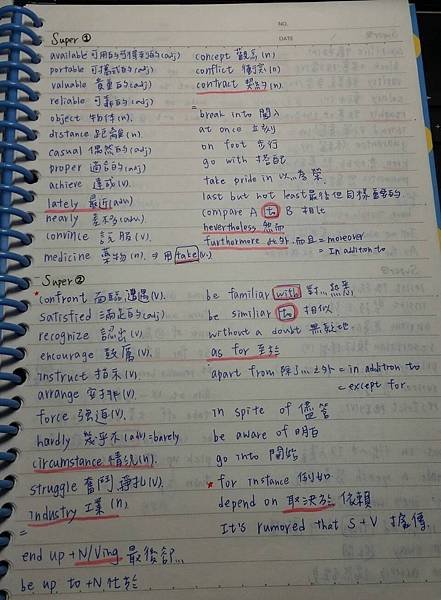 NO.
DATE
Super ①
available 可用的可得到的(adj)
portable 可攜式的(adj)
valuable 貴重的(adj)
reliable 可靠的(adj)
object 物件(n).
distance 距離(n).
casual 偶然的(adj)
proper 適當的(adj)
achieve 達成(v).
lately 最近(adv)
nearly 差不多(adv)
convince 說服(v).
medicine 藥物(n). ⇒ 用 take(v.)
concept 觀念(n)
conflict 衝突(n)
contract 契約(n).
=
break into 闖入
at once 立刻
on foot 步行
go with 搭配
take pride in 以...為榮
last but not least 最後但同樣重要的
compare A to B 相比
nevertheless 然而
furthermore 此外.而且 = moreover
= In addition to
Super ②
*confront 面臨.遭遇(v).
satisfied 滿足的(adj)
recognize 認出(v).
encourage 鼓勵(v).
instruct 指示(v).
arrange 安排(v).
force 強迫(v).
hardly 幾乎不(adv)=barely
circumstance 情況(n).
struggle 奮鬥.掙扎(v).
industry 工業(n)
=
end up + N/Ving 最後卻...
be up to +N 忙於
be familiar with 對...熟悉
be similiar to 相似
without a doubt 無疑地
as for 至於
apart from 除了...之外 = in addition to
= except for
in spite of 儘管
be aware of 明白
go into 開始
* for instance 例如
depend on 取決於 依賴
It's rumored that S + V 據傳.